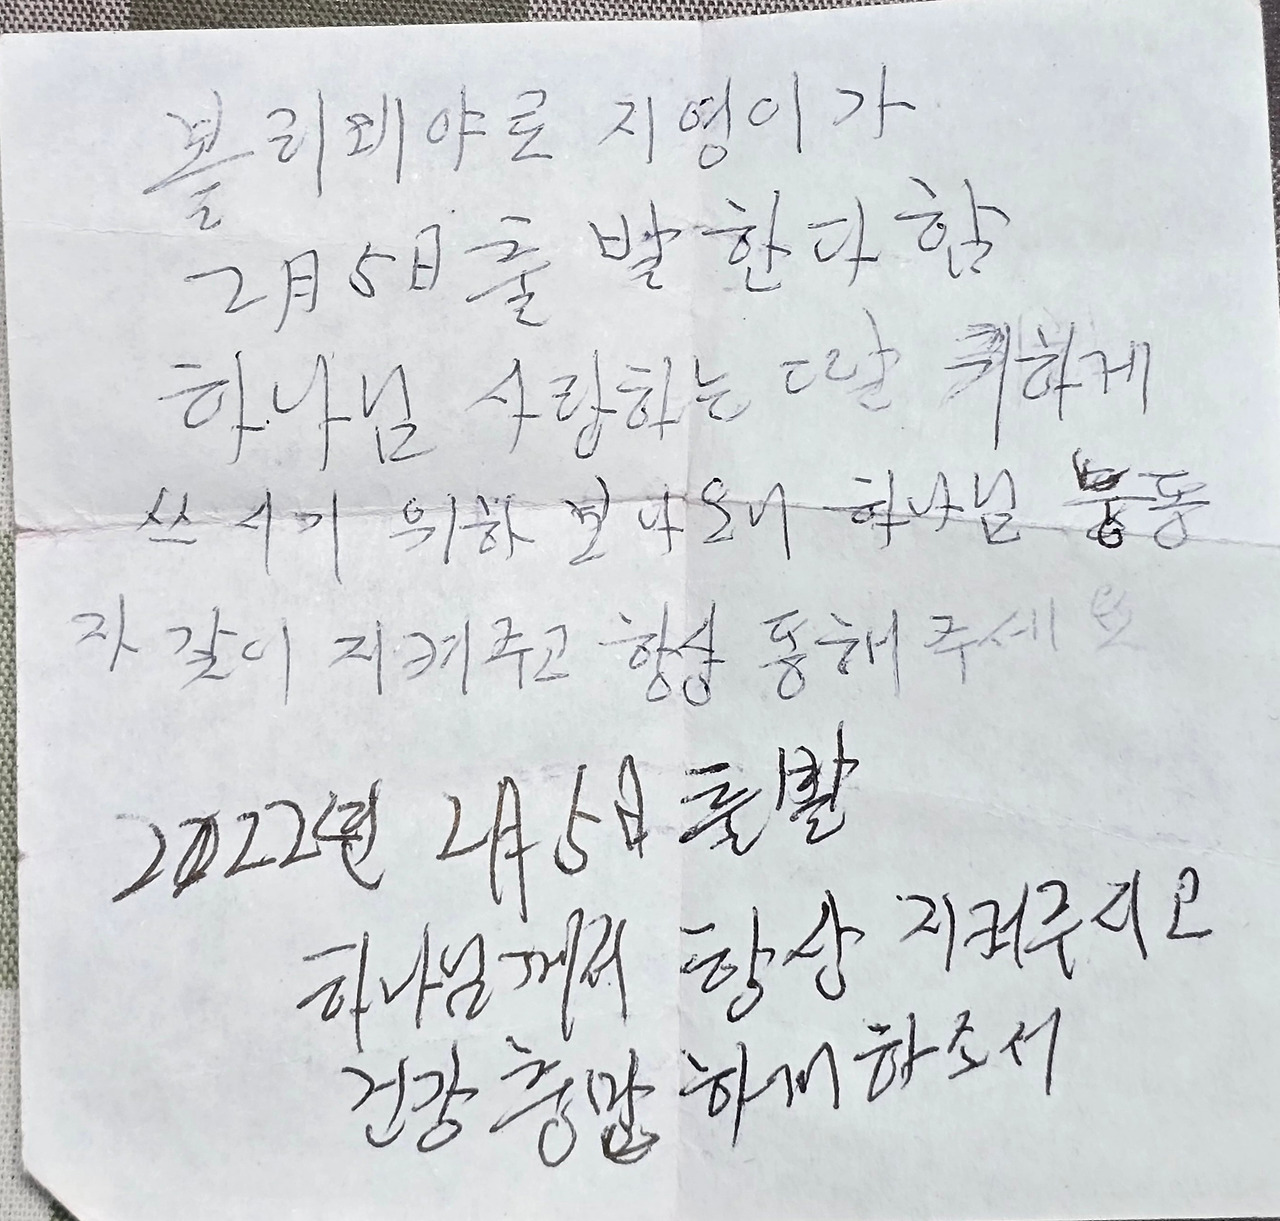 볼리뵈야로 지영이가
2月 5日 출발한다 함
하나님 사랑하는 딸 귀하게
쓰시기 위하 보나오니 하나님 눙동
자 같이 지켜주고 항상 동해 주세요
2022년 2月 5日 출발
하나님께서 항상 지켜주시고
건강 충만 하게 하조서